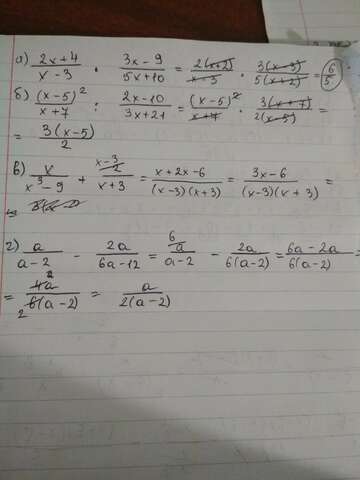 а) (2x+4)/(x-3) · (3x-9)/(5x+10) = 2(x+2)/(x-3) · 3(x-3)/(5(x+2)) = 6/5
б) (x-5)²/(x+7) : (2x-10)/(3x+21) = (x-5)²/(x+7) · 3(x+7)/(2(x-5)) =
= 3(x-5)/2
в) x/(x³-9) + (x-3) 2/(x+3) = (x+2x-6)/((x-3)(x+3)) = (3x-6)/((x-3)(x+3)) =
г) a/(a-2) - 2a/(6a-12) = 6 a/(a-2) - 2a/(6(a-2)) = (6a-2a)/(6(a-2)) =
= 4a 2/(2 6(a-2)) = a/(2(a-2))